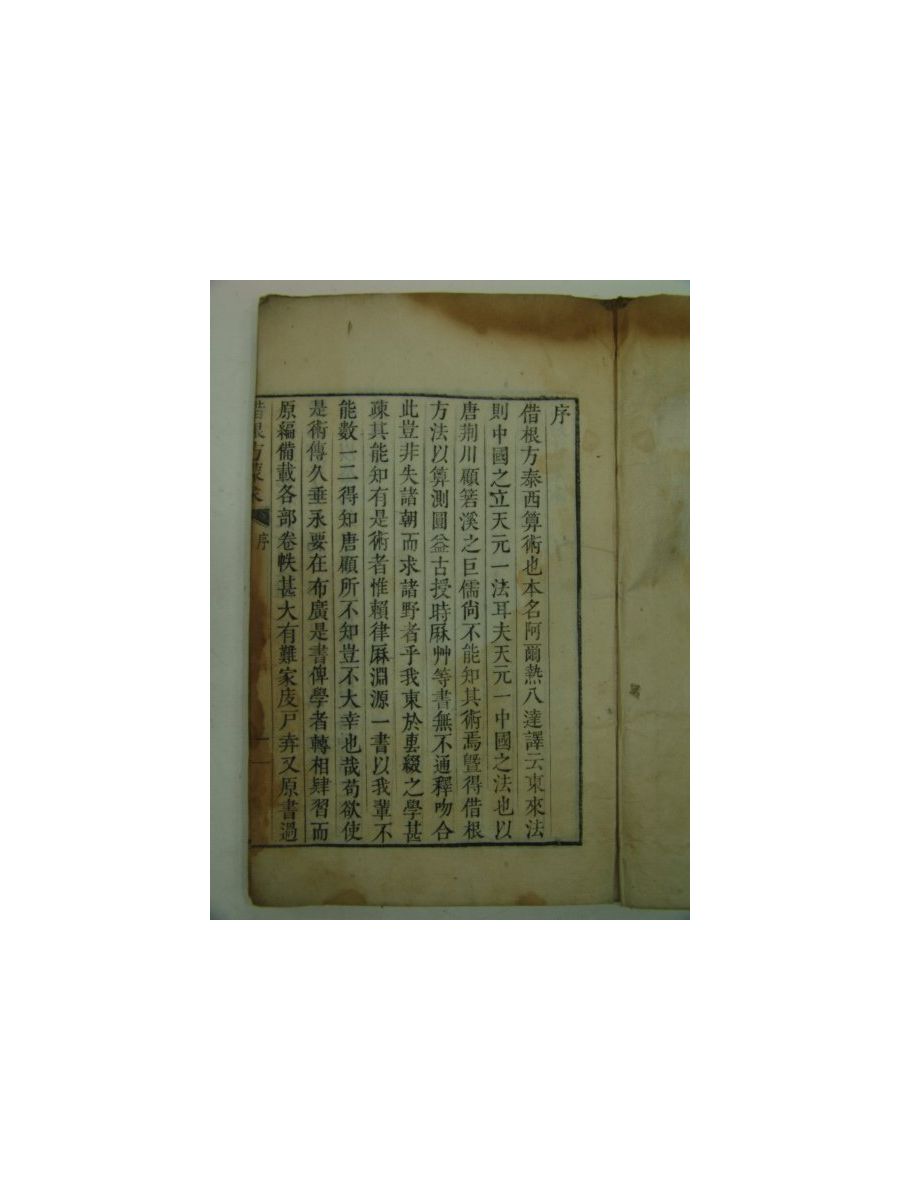 序
借根方泰西算術也本名阿爾熱八達譯云東來法
則中國之立天元一法耳夫天元一中國之法也以
唐荆川顧箬溪之巨儒尙不能知其術焉曁得借根
方法以算測圓益古授時厤艸等書無不通釋吻合
此豈非失諸朝而求諸野者乎我東於𠁅綴之學甚
疎其能知有是術者惟賴律厤淵源一書以我輩不
能數一二得知唐顧所不知豈不大幸也哉苟欲使
是術傳久垂永要在布廣是書俾學者轉相肄習而
原編備載各部卷帙甚大有難家庋戶弆又原書過
借根方蒙求 序 一